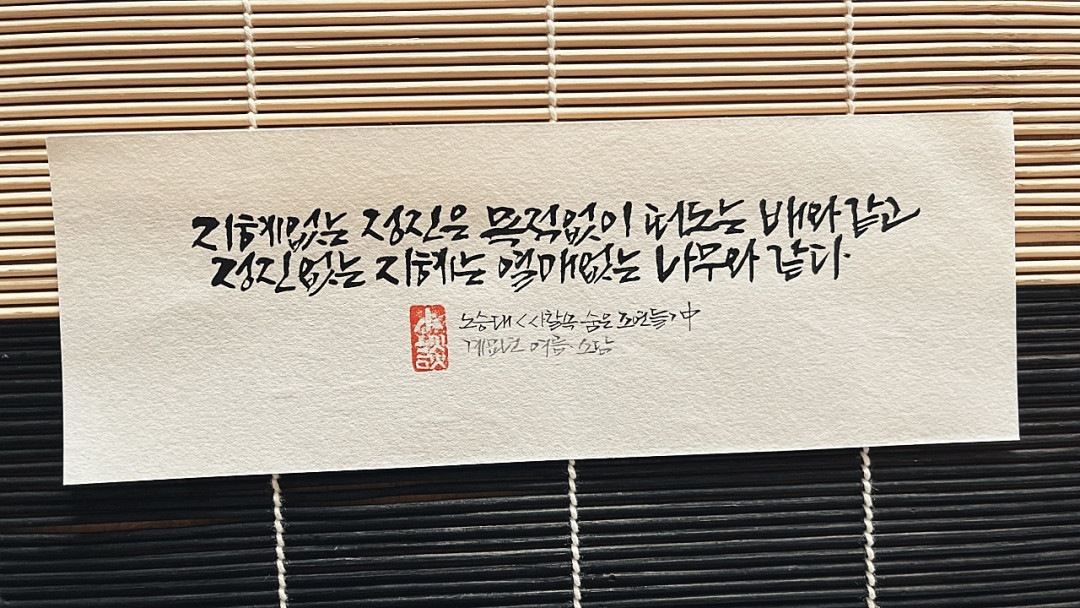 지혜없는 정진은 목적없이 떠도는 배와 같고
정진없는 지혜는 열매없는 나무와 같다.
노승대 <사찰속 숨은 조연들> 中
계묘년 여름 소담